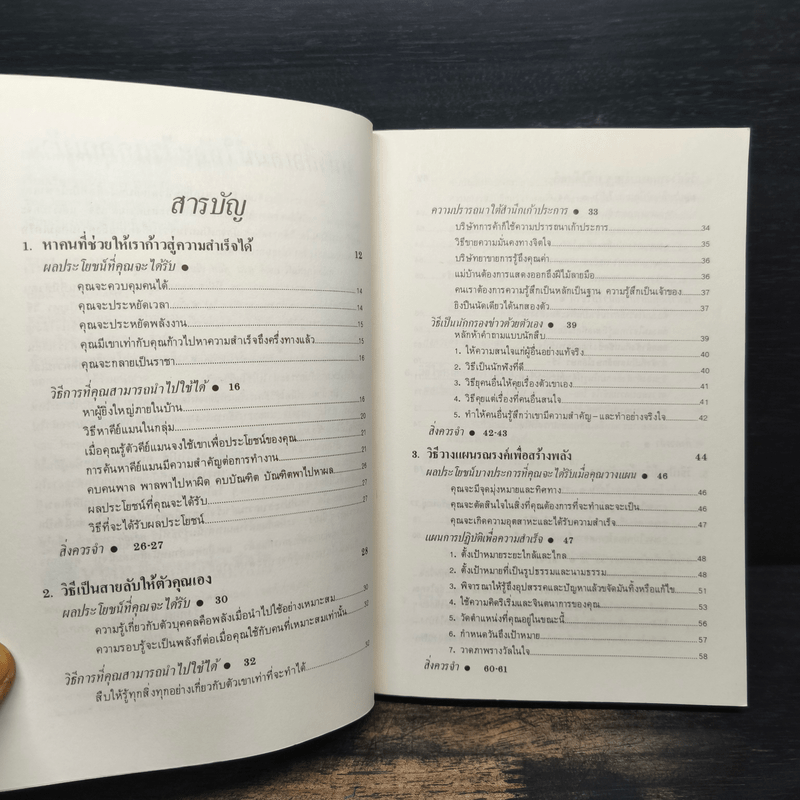 สารบัญ
1. หาคนที่ช่วยให้เราก้าวสู่ความสำเร็จได้ 12
ผลประโยชน์ที่คุณจะได้รับ ●
คุณจะควบคุมคนได้ 14
คุณจะประหยัดเวลา 14
คุณจะประหยัดพลังงาน 15
คุณมีเขาเท่ากับคุณก้าวไปหาความสำเร็จถึงครึ่งทางแล้ว 15
คุณจะกลายเป็นราชา 16
วิธีการที่คุณสามารถนำไปใช้ได้ ● 16
หาผู้ยิ่งใหญ่ภายในบ้าน 19
วิธีหาคีย์แมนในกลุ่ม 20
เมื่อคุณรู้ตัวคีย์แมนจงใช้เขาเพื่อประโยชน์ของคุณ 21
การค้นหาคีย์แมนมีความสำคัญต่อการทำงาน 22
คบคนพาล พาลพาไปหาผิด คบบัณฑิต บัณฑิตพาไปหาผล
ผลประโยชน์ที่คุณจะได้รับ 27
วิธีที่จะได้รับผลประโยชน์ 27
สิ่งควรจำ ● 26-27
2. วิธีเป็นสายลับให้ตัวคุณเอง 28
ผลประโยชน์ที่คุณจะได้รับ ● 30
ความรู้เกี่ยวกับตัวบุคคลคือพลังเมื่อนำไปใช้อย่างเหมาะสม 30
ความรอบรู้จะเป็นพลังก็ต่อเมื่อคุณใช้กับคนที่เหมาะสมเท่านั้น 30
วิธีการที่คุณสามารถนำไปใช้ได้ ● 32
สืบให้รู้ทุกสิ่งทุกอย่างเกี่ยวกับตัวเขาเท่าที่จะทำได้
ความปรารถนาใต้สำนึกเก้าประการ ● 33
บริษัทการค้าก็ใช้ความปรารถนาเก้าประการ 34
วิธีขายความมั่นคงทางจิตใจ 35
บริษัทยาขายการรู้ถึงคุณค่า 36
แม่บ้านต้องการแสดงออกถึงฝีไม้ลายมือ 36
คนเราต้องการความรู้สึกเป็นหลักเป็นฐาน ความรู้สึกเป็นเจ้าของ 37
ยิงปืนนัดเดียวได้นกสองตัว 37
วิธีเป็นนักกรองข่าวด้วยตัวเอง ● 39
หลักห้าคำถามแบบนักสืบ 39
1. ให้ความสนใจแก่ผู้อื่นอย่างแท้จริง 40
2. วิธีเป็นนักฟังที่ดี 40
3. วิธียุคนอื่นให้คุยเรื่องตัวเขาเอง 41
4. วิธีคุยแต่เรื่องที่คนอื่นสนใจ 41
5. ทำให้คนอื่นรู้สึกว่าเขามีความสำคัญ–และทำอย่างจริงใจ 42
สิ่งควรจำ ● 42-43
3. วิธีวางแผนรณรงค์เพื่อสร้างพลัง 44
ผลประโยชน์บางประการที่คุณจะได้รับเมื่อคุณวางแผน ● 46
คุณจะมีจุดมุ่งหมายและทิศทาง 46
คุณจะตัดสินใจในสิ่งที่คุณต้องการที่จะทำและจะเป็น 46
คุณจะเกิดความอุตสาหะและได้รับความสำเร็จ 47
แผนการปฏิบัติเพื่อความสำเร็จ ● 47
1. ตั้งเป้าหมายระยะใกล้และไกล 48
2. ตั้งเป้าหมายที่เป็นรูปธรรมและนามธรรม 48
3. พิจารณาให้รู้ถึงอุปสรรคและปัญหาแล้วขจัดมันทิ้งหรือแก้ไข 51
4. ใช้ความคิดริเริ่มและจินตนาการของคุณ 53
5. วัดตำแหน่งที่คุณอยู่ในขณะนี้ 56
6. กำหนดวันถึงเป้าหมาย 57
7. วาดภาพรางวัลในใจ 58
สิ่งควรจำ ● 60-61